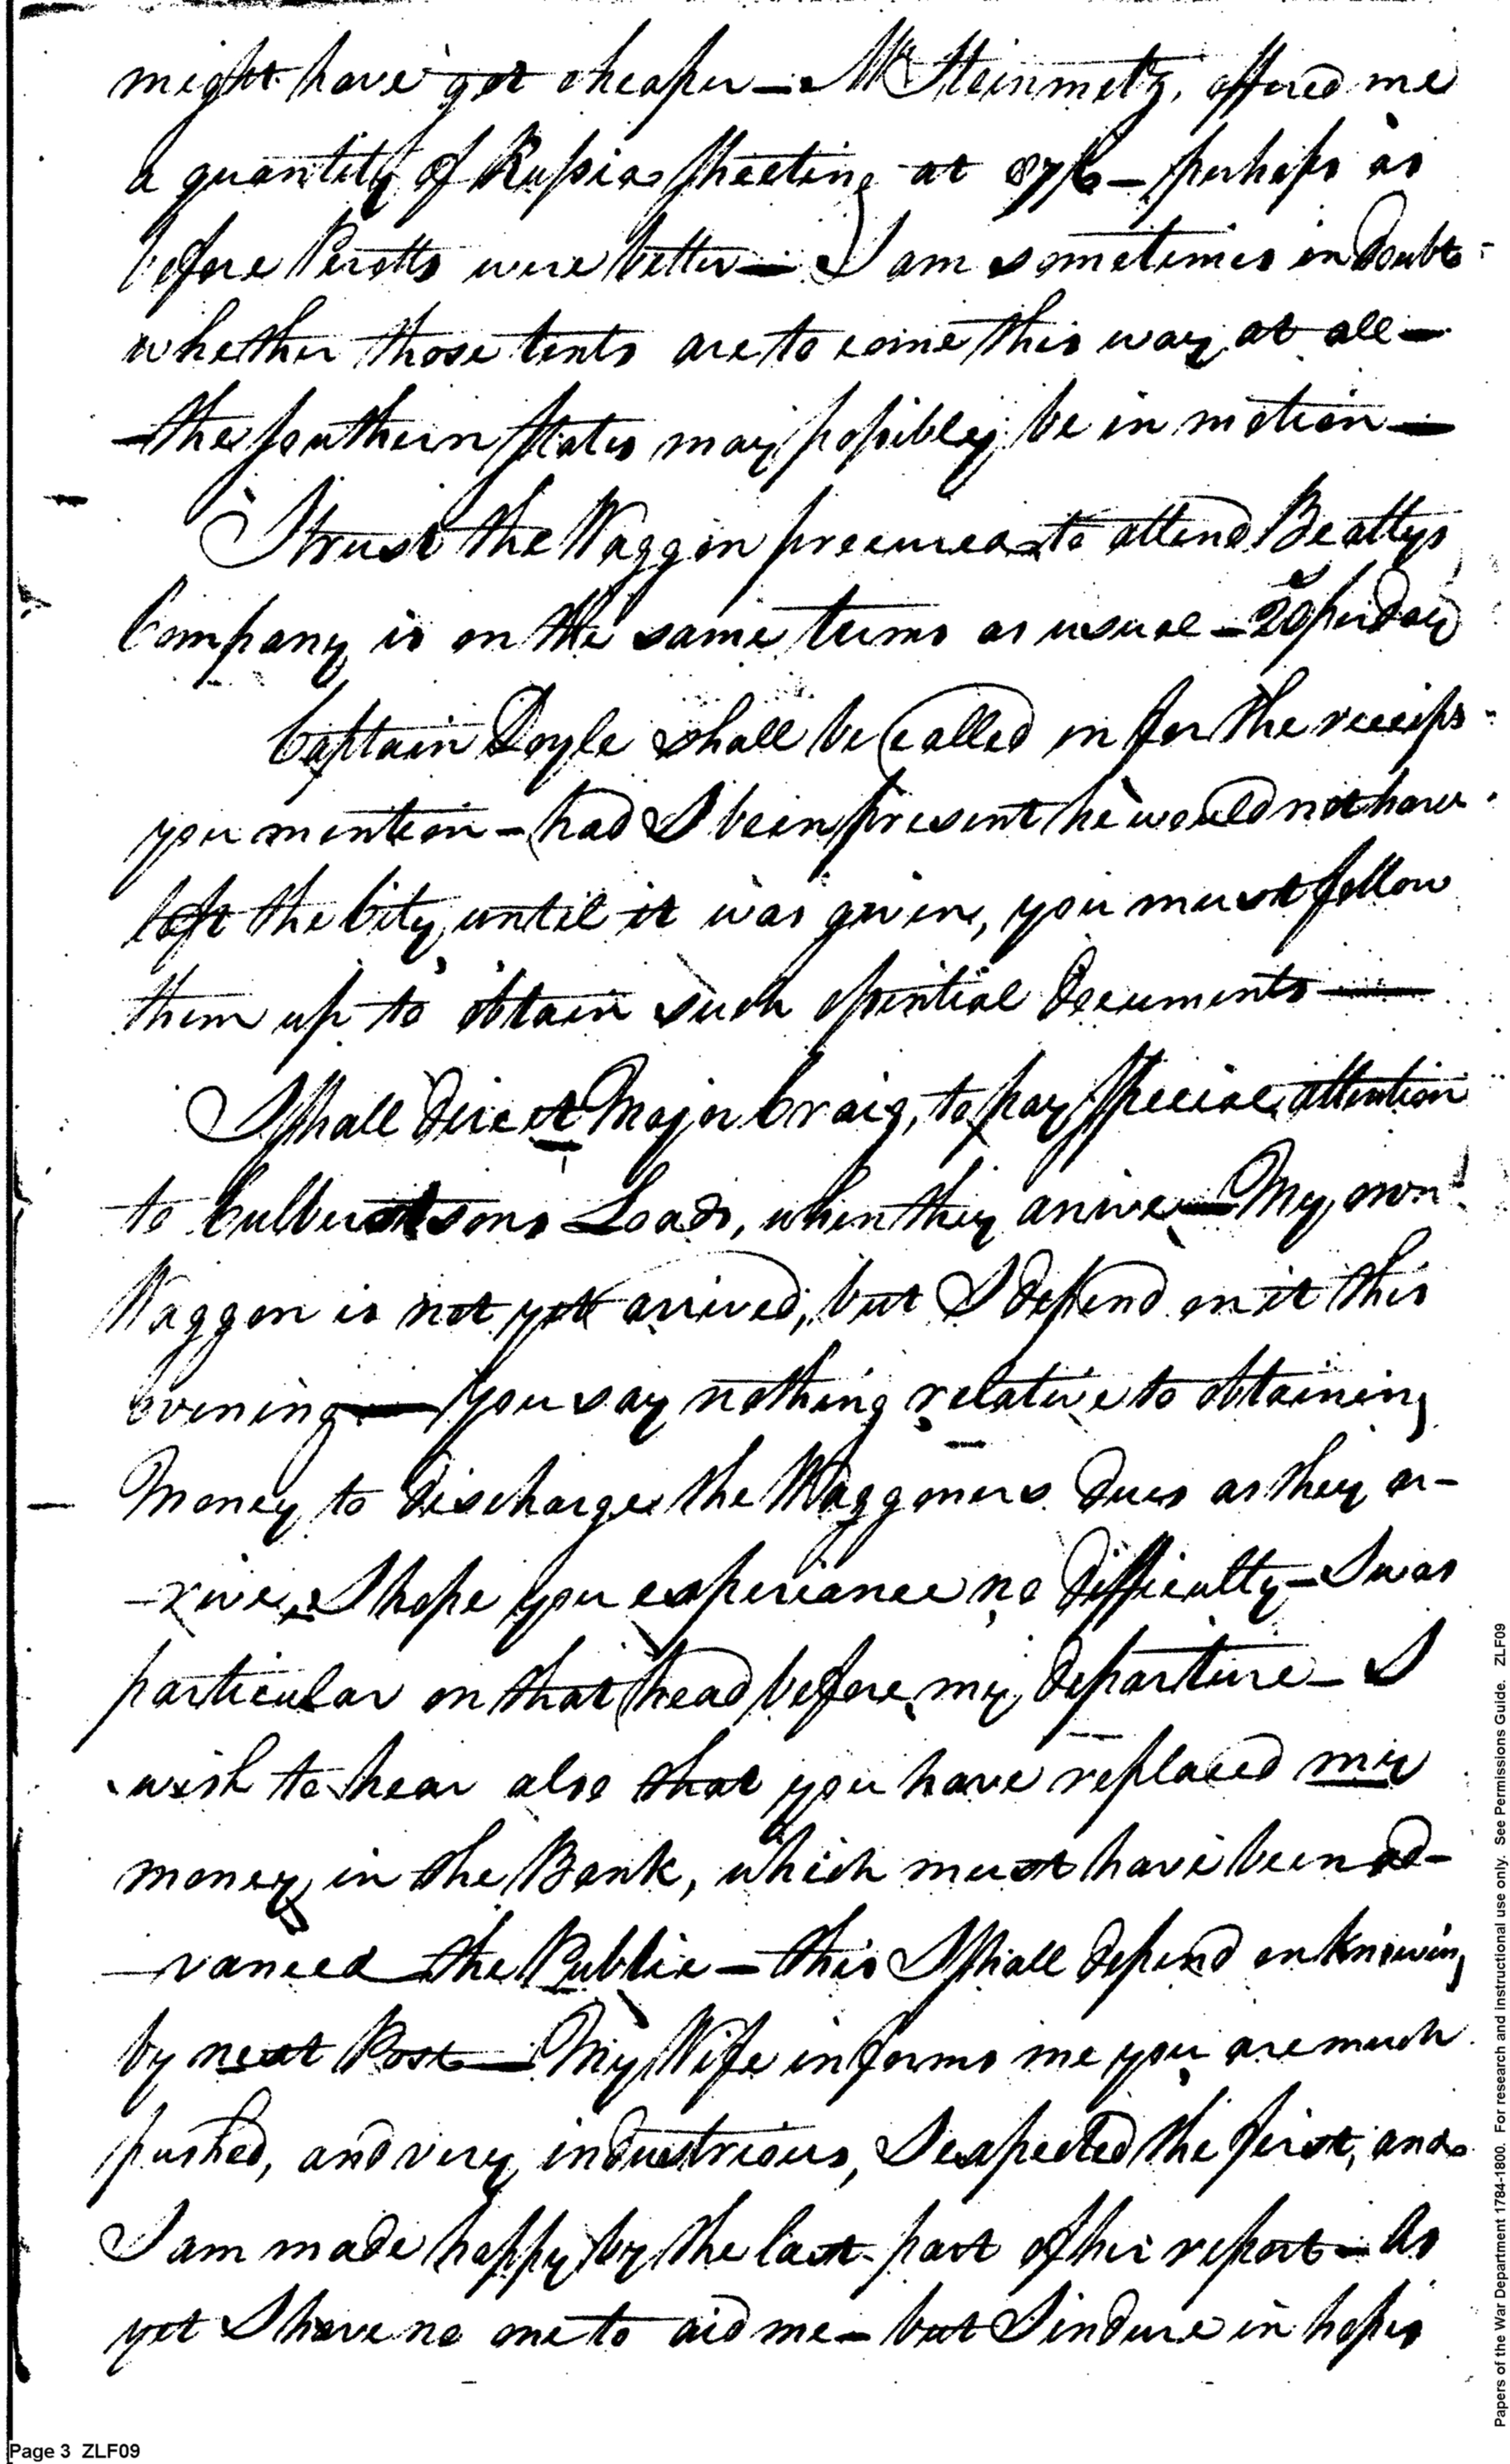 might have got cheaper — Mr Steinmetz, offered me
a quantity of Russia Sheeting at 87/6 — perhaps as
before Perotts were better — I am sometimes in doubt
whether those tents are to come this way at all —
— the southern States may possibley be in motion —
I trust the Waggon procured to attend Beattys
Company is on the same terms as usual — 20/ per day
Captain Doyle shall be called on for the receipts
you mention — had I been present he would not have
left the City until it was given, you must follow
them up to obtain such essential documents —
I shall direct Major Craig, to pay special attention
to Culbertsons Loads, when they arrive — My own
Waggon is not yet arrived, but I depend on it this
evening — you say nothing relative to obtaining
Money to discharge the Waggoners dues as they ar-
-rive, I hope you experiance no difficulty — I was
particular on that head before my departure — I
wish to hear also that you have replaced my
money in the Bank, which must have been ad-
-vanced the Public — this I shall depend on knowing
by next Post — My Wife informs me you are much
pushed, and very industrious, I expected the first, and
I am made happy by the last part of her report — As
yet I have no one to aid me — but I indure in hopes
Page 3 ZLF09
Papers of the War Department 1784-1800. For research and instructional use only. See Permissions Guide. ZLF09